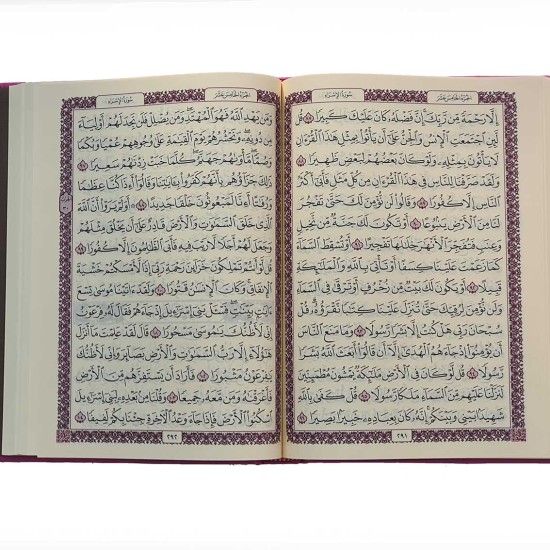 الجزء الخامس عشر سورة الإسراء
إِلَّا رَحْمَةً مِّن رَّبِّكَ إِنَّ فَضْلَهُۥ كَانَ عَلَيْكَ كَبِيرًا ٨٧ قُل
لَّئِنِ ٱجْتَمَعَتِ ٱلْإِنسُ وَٱلْجِنُّ عَلَىٰٓ أَن يَأْتُوا۟ بِمِثْلِ هَٰذَا ٱلْقُرْءَانِ
لَا يَأْتُونَ بِمِثْلِهِۦ وَلَوْ كَانَ بَعْضُهُمْ لِبَعْضٍ ظَهِيرًا ٨٨
وَلَقَدْ صَرَّفْنَا لِلنَّاسِ فِى هَٰذَا ٱلْقُرْءَانِ مِن كُلِّ مَثَلٍ فَأَبَىٰٓ أَكْثَرُ
ٱلنَّاسِ إِلَّا كُفُورًا ٨٩ وَقَالُوا۟ لَن نُّؤْمِنَ لَكَ حَتَّىٰ تَفْجُرَ
لَنَا مِنَ ٱلْأَرْضِ يَنۢبُوعًا ٩٠ أَوْ تَكُونَ لَكَ جَنَّةٌ مِّن نَّخِيلٍ
وَعِنَبٍ فَتُفَجِّرَ ٱلْأَنْهَٰرَ خِلَٰلَهَا تَفْجِيرًا ٩١ أَوْ تُسْقِطَ ٱلسَّمَآءَ
كَمَا زَعَمْتَ عَلَيْنَا كِسَفًا أَوْ تَأْتِىَ بِٱللَّهِ وَٱلْمَلَٰٓئِكَةِ
قَبِيلًا ٩٢ أَوْ يَكُونَ لَكَ بَيْتٌ مِّن زُخْرُفٍ أَوْ تَرْقَىٰ فِى ٱلسَّمَآءِ
وَلَن نُّؤْمِنَ لِرُقِيِّكَ حَتَّىٰ تُنَزِّلَ عَلَيْنَا كِتَٰبًا نَّقْرَؤُهُۥ قُلْ
سُبْحَانَ رَبِّى هَلْ كُنتُ إِلَّا بَشَرًا رَّسُولًا ٩٣ وَمَا مَنَعَ ٱلنَّاسَ
أَن يُؤْمِنُوٓا۟ إِذْ جَآءَهُمُ ٱلْهُدَىٰٓ إِلَّآ أَن قَالُوٓا۟ أَبَعَثَ ٱللَّهُ بَشَرًا
رَّسُولًا ٩٤ قُل لَّوْ كَانَ فِى ٱلْأَرْضِ مَلَٰٓئِكَةٌ يَمْشُونَ مُطْمَئِنِّينَ
لَنَزَّلْنَا عَلَيْهِم مِّنَ ٱلسَّمَآءِ مَلَكًا رَّسُولًا ٩٥ قُلْ كَفَىٰ بِٱللَّهِ
شَهِيدًۢا بَيْنِى وَبَيْنَكُمْ إِنَّهُۥ كَانَ بِعِبَادِهِۦ خَبِيرًۢا بَصِيرًا ٩٦
٢٩١
الجزء الخامس عشر سورة الإسراء
وَمَن يَهْدِ ٱللَّهُ فَهُوَ ٱلْمُهْتَدِ وَمَن يُضْلِلْ فَلَن تَجِدَ لَهُمْ أَوْلِيَآءَ
مِن دُونِهِۦ وَنَحْشُرُهُمْ يَوْمَ ٱلْقِيَٰمَةِ عَلَىٰ وُجُوهِهِمْ عُمْيًا وَبُكْمًا
وَصُمًّا مَّأْوَىٰهُمْ جَهَنَّمُ كُلَّمَا خَبَتْ زِدْنَٰهُمْ سَعِيرًا ٩٧
ذَٰلِكَ جَزَآؤُهُم بِأَنَّهُمْ كَفَرُوا۟ بِـَٔايَٰتِنَا وَقَالُوٓا۟ أَءِذَا كُنَّا عِظَٰمًا
وَرُفَٰتًا أَءِنَّا لَمَبْعُوثُونَ خَلْقًا جَدِيدًا ٩٨ أَوَلَمْ يَرَوْا۟ أَنَّ ٱللَّهَ
ٱلَّذِى خَلَقَ ٱلسَّمَٰوَٰتِ وَٱلْأَرْضَ قَادِرٌ عَلَىٰٓ أَن يَخْلُقَ مِثْلَهُمْ
وَجَعَلَ لَهُمْ أَجَلًا لَّا رَيْبَ فِيهِ فَأَبَى ٱلظَّٰلِمُونَ إِلَّا كُفُورًا ٩٩
قُل لَّوْ أَنتُمْ تَمْلِكُونَ خَزَآئِنَ رَحْمَةِ رَبِّىٓ إِذًا لَّأَمْسَكْتُمْ خَشْيَةَ
ٱلْإِنفَاقِ وَكَانَ ٱلْإِنسَٰنُ قَتُورًا ١٠٠ وَلَقَدْ ءَاتَيْنَا مُوسَىٰ تِسْعَ
ءَايَٰتٍۭ بَيِّنَٰتٍ فَسْـَٔلْ بَنِىٓ إِسْرَٰٓءِيلَ إِذْ جَآءَهُمْ فَقَالَ لَهُۥ فِرْعَوْنُ
إِنِّى لَأَظُنُّكَ يَٰمُوسَىٰ مَسْحُورًا ١٠١ قَالَ لَقَدْ عَلِمْتَ مَآ أَنزَلَ
هَٰٓؤُلَآءِ إِلَّا رَبُّ ٱلسَّمَٰوَٰتِ وَٱلْأَرْضِ بَصَآئِرَ وَإِنِّى لَأَظُنُّكَ
يَٰفِرْعَوْنُ مَثْبُورًا ١٠٢ فَأَرَادَ أَن يَسْتَفِزَّهُم مِّنَ ٱلْأَرْضِ
فَأَغْرَقْنَٰهُ وَمَن مَّعَهُۥ جَمِيعًا ١٠٣ وَقُلْنَا مِنۢ بَعْدِهِۦ لِبَنِىٓ إِسْرَٰٓءِيلَ
ٱسْكُنُوا۟ ٱلْأَرْضَ فَإِذَا جَآءَ وَعْدُ ٱلْـَٔاخِرَةِ جِئْنَا بِكُمْ لَفِيفًا ١٠٤
٢٩٢